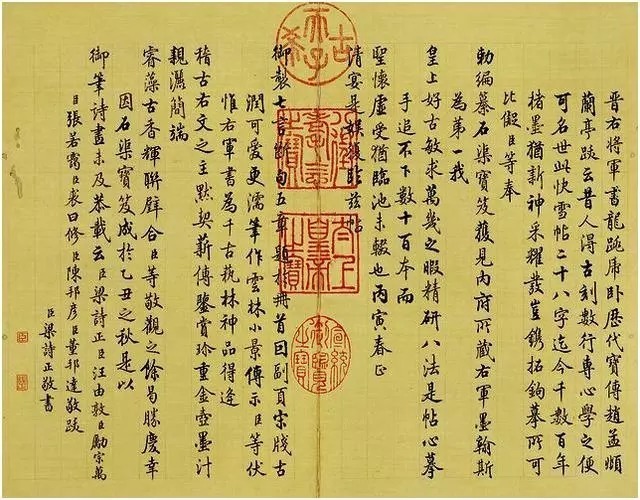 晉右將軍書龍跳虎卧歷代寶傳趙孟頫
蘭亭跋云昔人得古刻數行專心學之便
可名世此快雪帖二十八字迄今千數百年
楮墨猶新神采耀發豈鐫拓鉤摹所可
比儗臣等奉
勅編纂石渠寶笈獲見內府所藏右軍墨翰斯
為第一我
皇上好古敏求萬幾之暇精研八法是帖心摹
手追不下數十百本而
聖懷虛受猶臨池未輟也丙寅春正
清宴是娛復臨茲帖
御製七言斷句五章題於冊首因副頁宋牋古
潤可愛更濡筆作雲林小景傳示臣等伏
惟右軍書為千古蓺林神品得逢
稽古右文之主默契薪傳鑒賞珍重金壺墨汁
親灑簡端
睿藻古香輝聯璧合臣等敬觀之餘曷勝慶幸
因石渠寶笈成於乙丑之秋是以
御筆詩畫未及恭載云臣梁詩正臣汪由敦臣勵宗萬
臣張若靄臣裘曰修臣陳邦彥臣董邦達敬跋
臣梁詩正敬書
古希天子
太上皇帝之寶
宣統御覽之寶